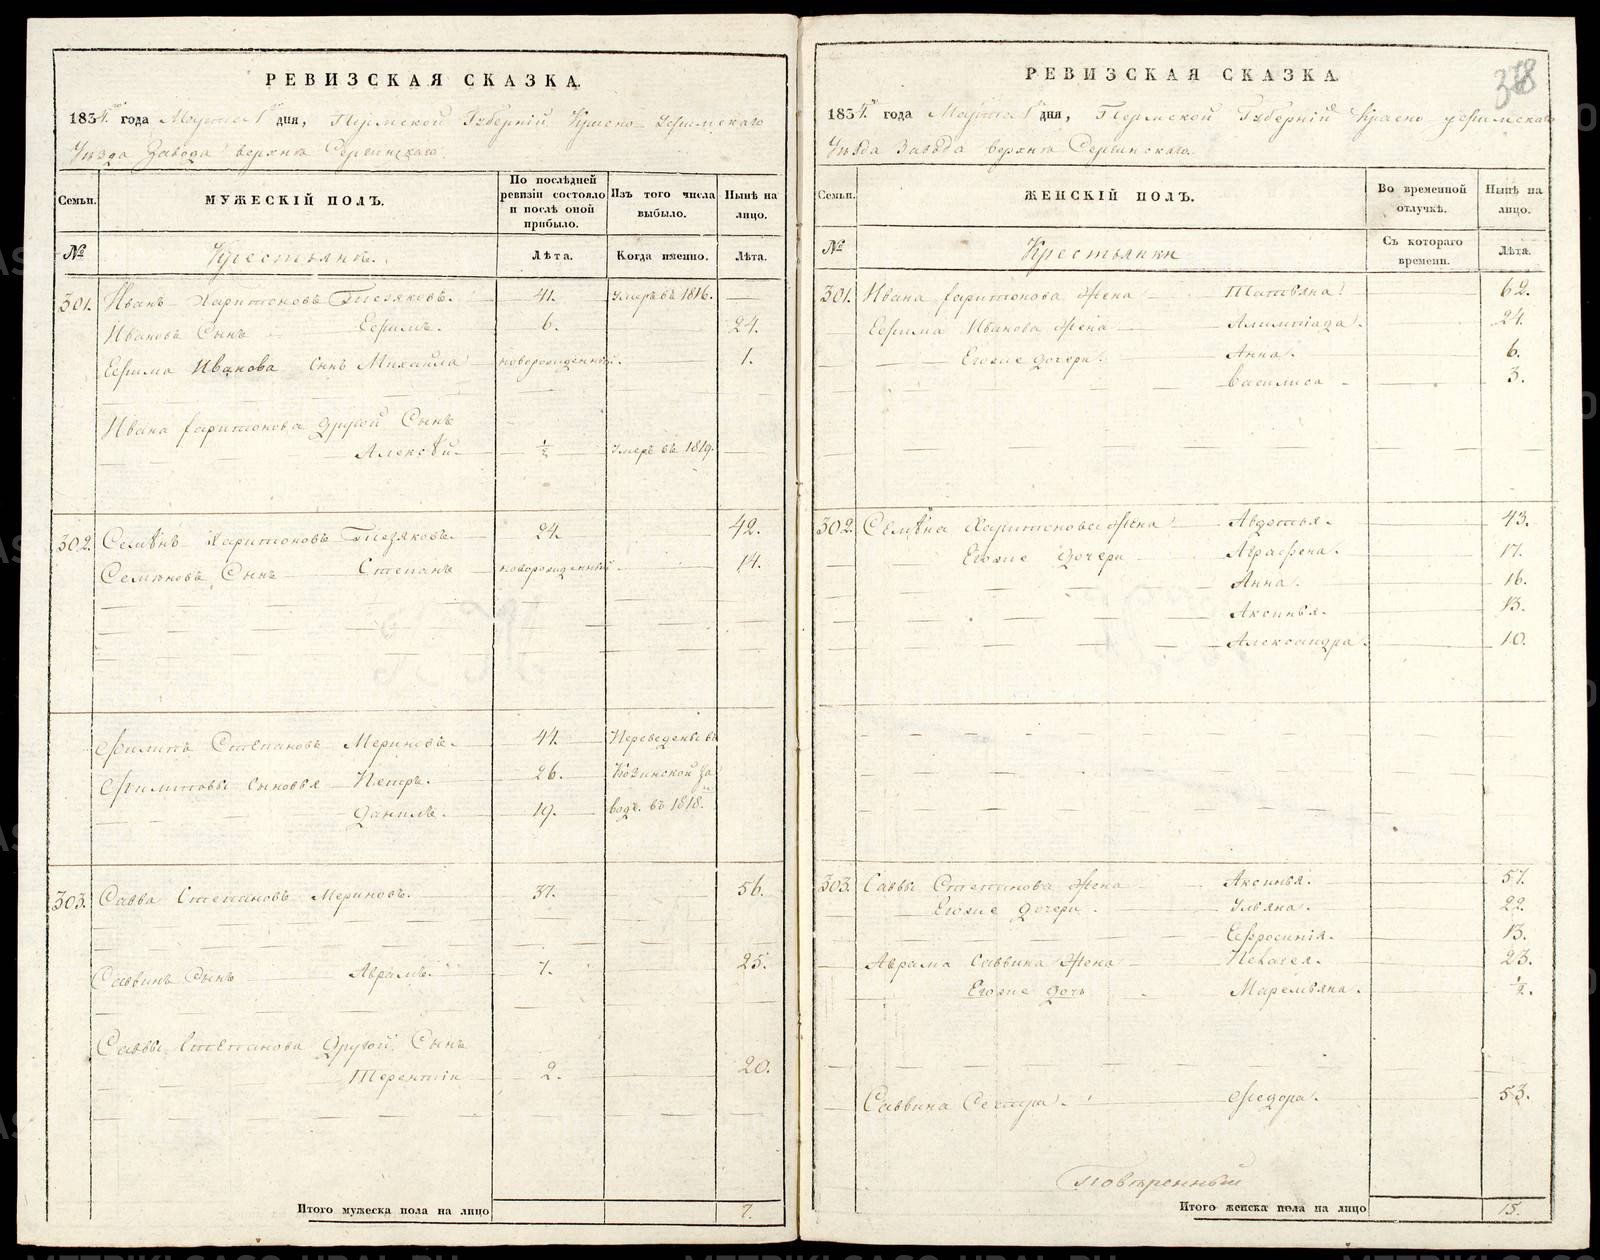 РЕВИЗСКАЯ СКАЗКА.
1834 года Марта 1 дня, Пермской Губерніи Красно-Уфимскаго
Уѣзда Завода верхне Сергинскаго
Семьи.
МУЖЕСКІЙ ПОЛЪ.
По послѣдней ревизіи состояло и послѣ оной прибыло.
Изъ того числа выбыло.
Нынѣ на лицо.
№
Крестьяне.
Лѣта.
Когда именно.
Лѣта.
301. Иванъ Харитоновъ 41. Умеръ въ 1816.
Ивановъ Сынъ Ефимъ. 6. 24.
Ефима Иванова Сынъ Михайла новорожденный. 1.
Ивана Харитонова другой Сынъ
Алексѣй 1/2 Умеръ въ 1819.
302. Семенъ Харитоновъ 24. 42.
Семеновъ Сынъ Степанъ новорожденный. 14.
Филипъ Степановъ Мериновъ. 44. Переведены въ
Филиповы сыновья Петръ. 26. за
Данилъ. 19. водъ. въ 1818.
303. Савва Степановъ Мериновъ. 37. 56.
Саввинъ Сынъ Аврамъ. 7. 25.
Саввы Степанова другой Сынъ
Терентій 2. 20.
Итого мужеска пола на лицо 7.
РЕВИЗСКАЯ СКАЗКА.
378
1834 года Марта 1 дня, Пермской Губерніи Красно-уфимскаго
Уѣзда Завода верхне Сергинскаго
Семьи.
ЖЕНСКІЙ ПОЛЪ.
Во временной отлучкѣ.
Нынѣ на лицо.
№
Крестьянки
Съ котораго времени.
Лѣта.
301. Ивана Харитонова Жена Татьяна 62.
Ефима Иванова Жена Алимпіада. 24.
Егоже дочери. Анна. 6.
Василиса 3.
302. Семена Харитонова Жена Авдотья. 43.
Егоже дочери Аграфена. 17.
Анна. 16.
Аксинья. 13.
Александра. 10.
303. Саввы Степанова Жена Аксинья. 57.
Егоже дочери. Ульяна. 22.
Ефросинія. 13.
Аврама Саввина Жена Пелагея. 23.
Егоже дочь Маремьяна. 1/2.
Саввина Сестра. Федора. 53.
Повѣренный
Итого женска пола на лицо 15.